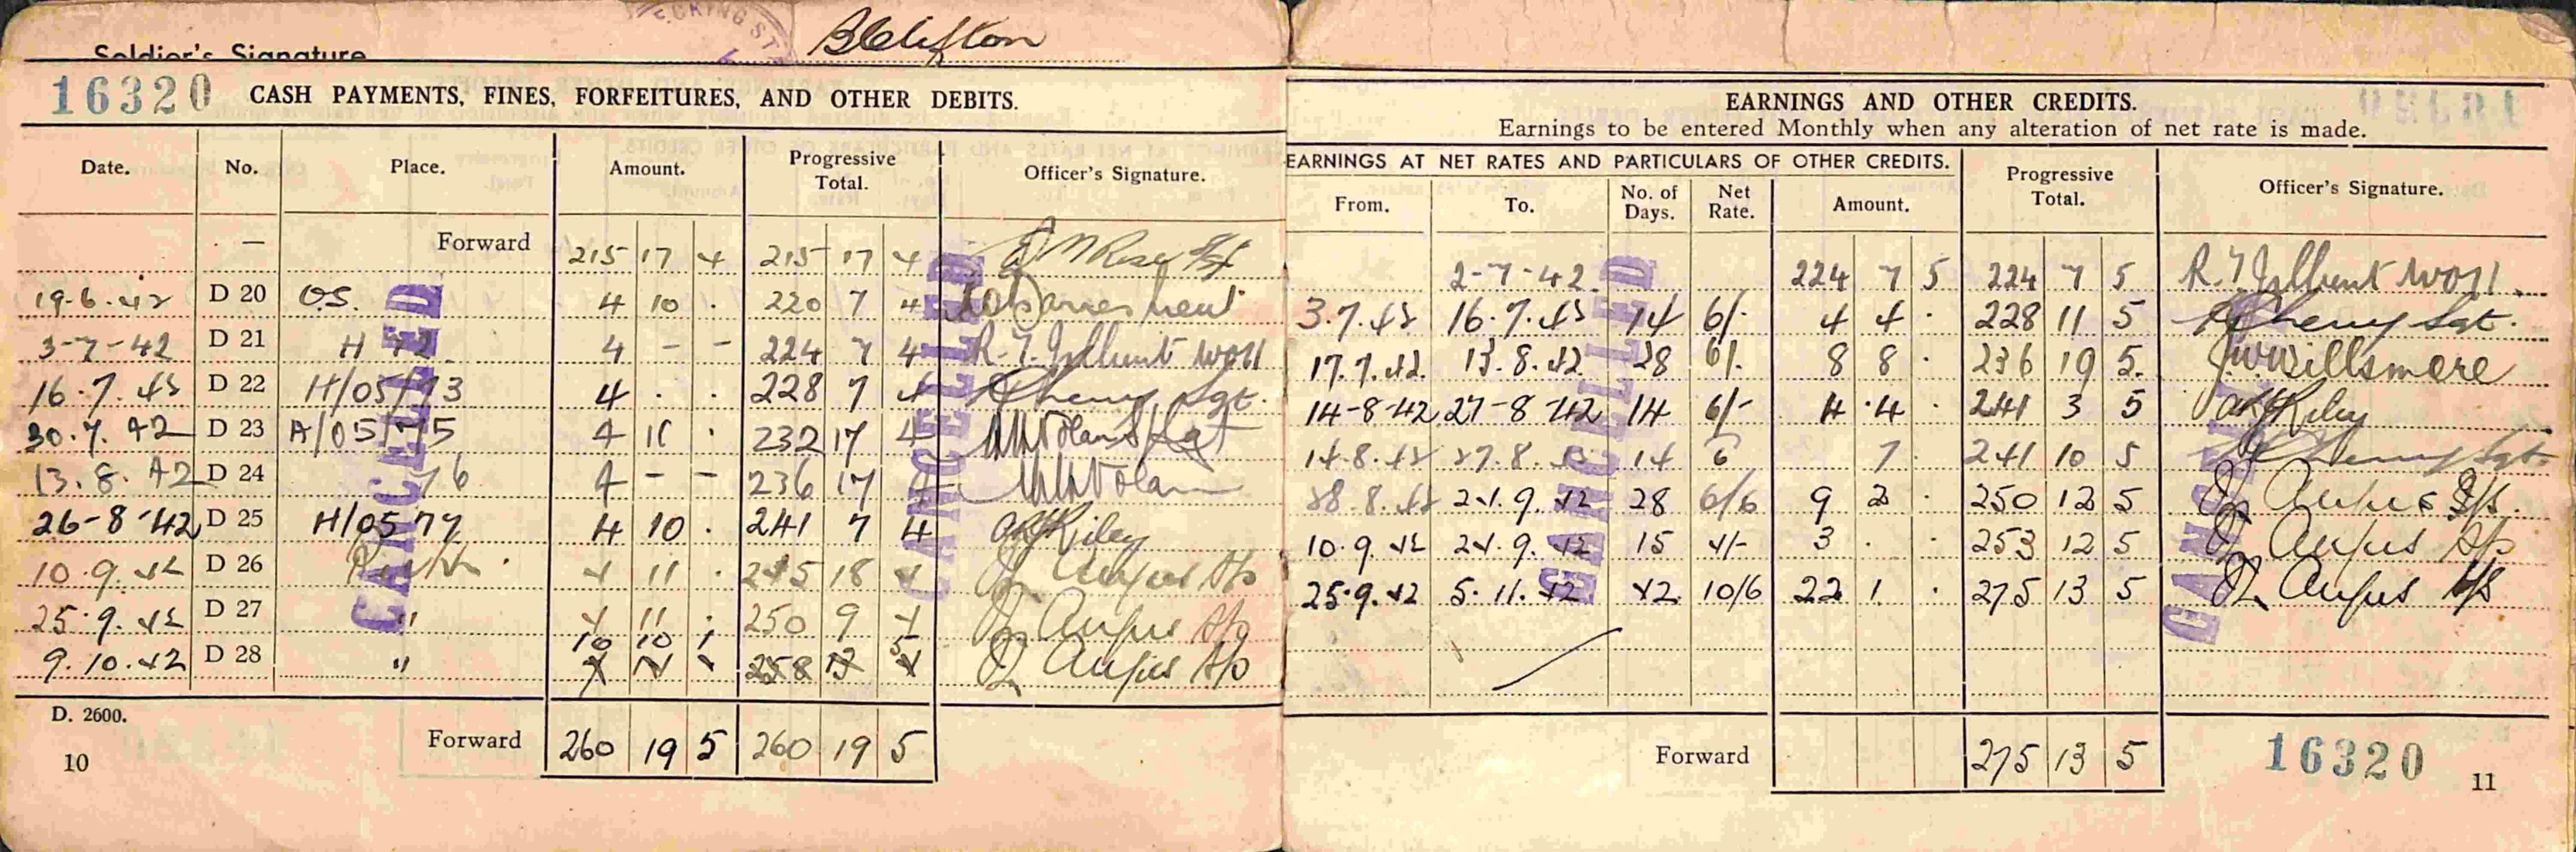 Soldier's Signature BClifton
16320 CASH PAYMENTS, FINES, FORFEITURES, AND OTHER DEBITS.
Date. No. Place. Amount. Progressive Total. Officer's Signature.
— Forward 215 17 4 215 17 4
19-6-42 D 20 O.S. 4 10 . 220 7 4
3-7-42 D 21 H 72 4 - - 224 7 4
16.7.42 D 22 H/05/73 4 . . 228 7 4 Sgt.
30.7.42 D 23 A/05/75 4 10 . 232 17 4
13.8.42 D 24 76 4 - - 236 17 4
26-8-42 D 25 H/05 77 4 10 . 241 7 4 Riley
10.9.42 D 26 4 11 . 245 18 4 Angus
25.9.42 D 27 " 4 11 . 250 9 4 Angus
10 10 1
9.10.42 D 28 " 258 Angus
D. 2600.
Forward 260 19 5 260 19 5
10
CANCELLED
CANCELLED
EARNINGS AND OTHER CREDITS.
Earnings to be entered Monthly when any alteration of net rate is made.
EARNINGS AT NET RATES AND PARTICULARS OF OTHER CREDITS. Progressive Total. Officer's Signature.
From. To. No. of Days. Net Rate. Amount.
2-7-42 224 7 5 224 7 5
3.7.42 16.7.42 14 6/- 4 4 . 228 11 5 Sgt.
17.7.42 13.8.42 28 6/- 8 8 . 236 19 5 Willsmore
14-8-42 27-8-42 14 6/- 4 4 . 241 3 5 Riley
14.8.42 27.8.42 14 6 7 . 241 10 5 Sgt.
28.8.42 24.9.42 28 6/6 9 2 . 250 12 5 Angus
10.9.42 24.9.42 15 4/- 3 . . 253 12 5 Angus
25.9.42 5.11.42 42 10/6 22 1 . 275 13 5 Angus
Forward 275 13 5
16320 11
CANCELLED